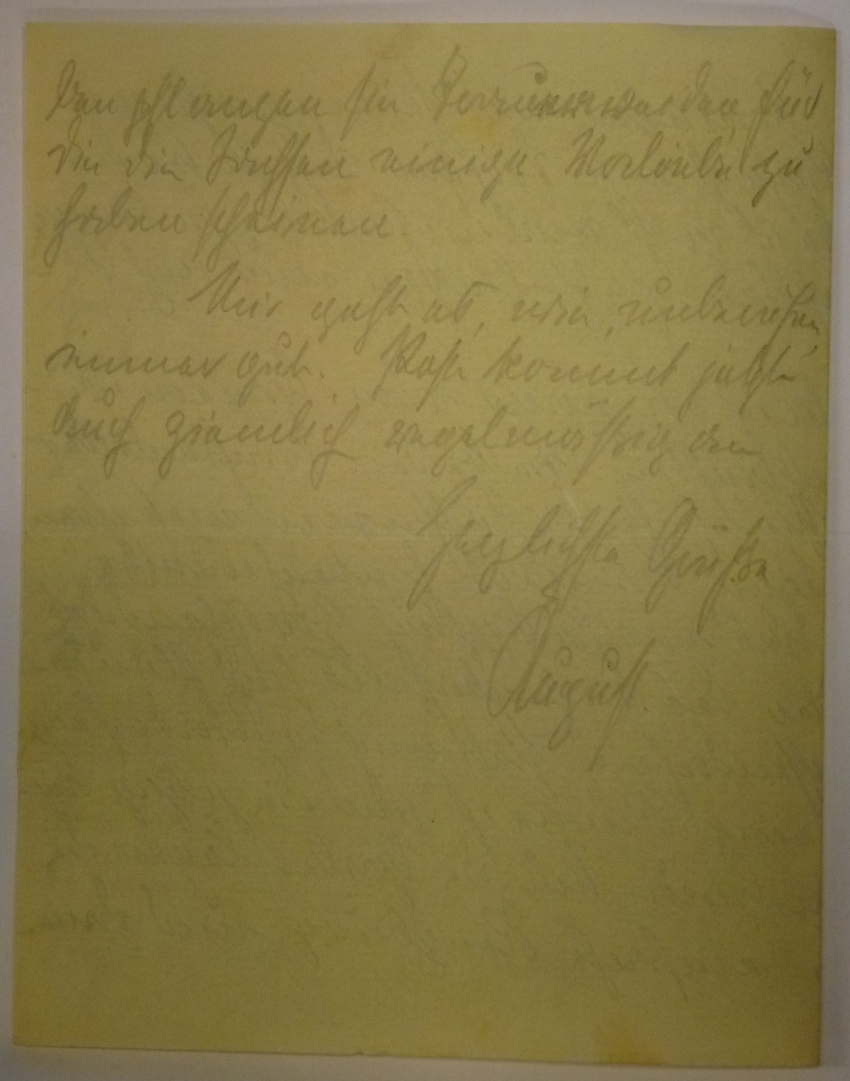 pflanzen sie Trauerweiden, für
die die Sachsen einige Vorliebe zu
haben scheinen.
Mir geht es, wie, unberufen,
immer gut. Post kommt jetzt
auch ziemlich regelmäßig an
Herzlichste Grüße
August.